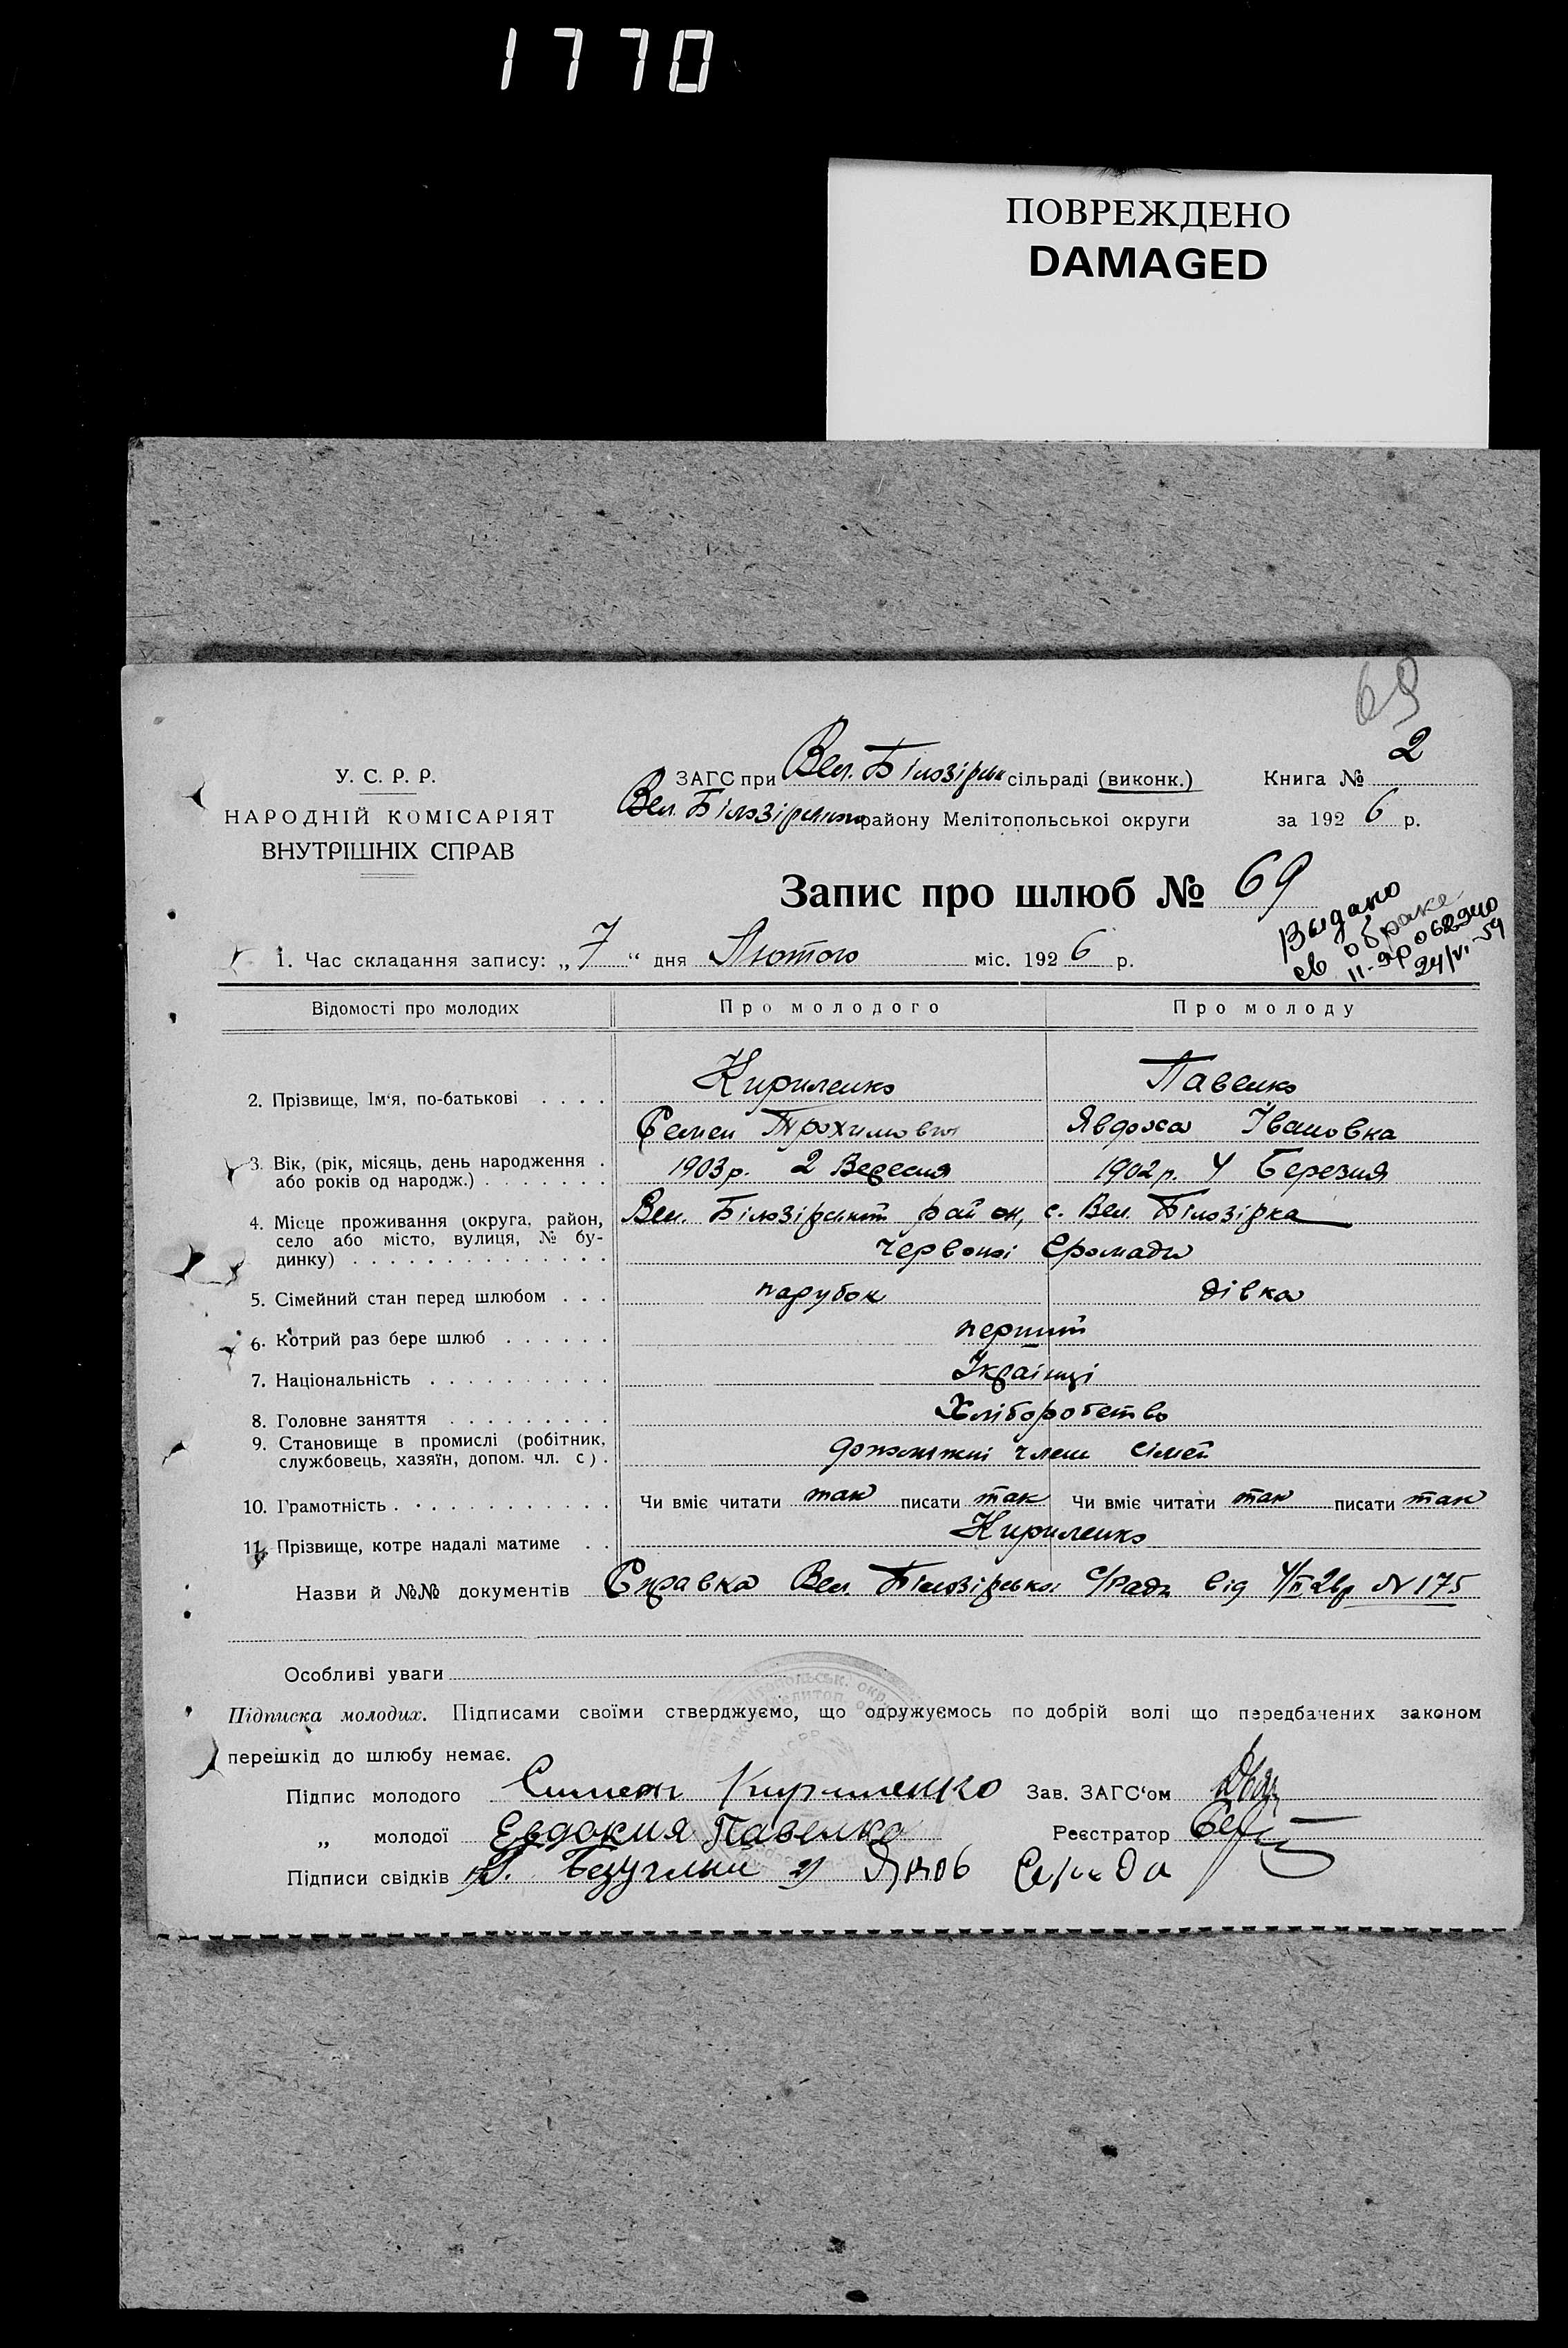 1770
ПОВРЕЖДЕНО
DAMAGED
69
У. С. Р. Р.
НАРОДНІЙ КОМІСАРІЯТ
ВНУТРІШНІХ СПРАВ
ЗАГС при Вел. Білозірськ сільраді (виконк.)
Вел. Білозірського району Мелітопольської округи
Книга № 2
за 1926 р.
Запис про шлюб № 69
Выдано
св о браке
24/VI-59
1. Час складання запису: „7“ дня Лютого міс. 1926 р.
Відомості про молодих Про молодого Про молоду
2. Прізвище, Ім'я, по-батькові . . . . Кириленко Павенко
Семен Трохимович Явдоха Івановна
3. Вік, (рік, місяць, день народження . 1903р. 2 Вересня 1902р. 4 Березня
або років од народж.) . . . . . . .
4. Місце проживання (округа, район, Вел. Білозірський район, с. Вел. Білозірка
село або місто, вулиця, № бу-
динку) . . . . . . . . . . . . . . Червоної Громади
5. Сімейний стан перед шлюбом . . . парубок дівка
6. Котрий раз бере шлюб . . . . . . перший
7. Національність . . . . . . . . . . Українці
8. Головне заняття . . . . . . . . . Хліборобство
9. Становище в промислі (робітник,
службовець, хазяїн, допом. чл. с). допомяжні члени сімей
10. Грамотність . . . . . . . . . . . . Чи вміє читати так писати так Чи вміє читати так писати так
11. Прізвище, котре надалі матиме . . Кириленко
Назви й №№ документів Справка Вел. Білозірської С/Ради від 4/II 26р N 175
Особливі уваги
Підписка молодих. Підписами своїми стверджуємо, що одружуємось по добрій волі що передбачених законом
перешкід до шлюбу немає.
Підпис молодого Симеон Кириленко Зав. ЗАГС'ом
„ молодої Евдокия Павенко Реєстратор
Підписи свідків 1) Безуглий 2) Яков Середа